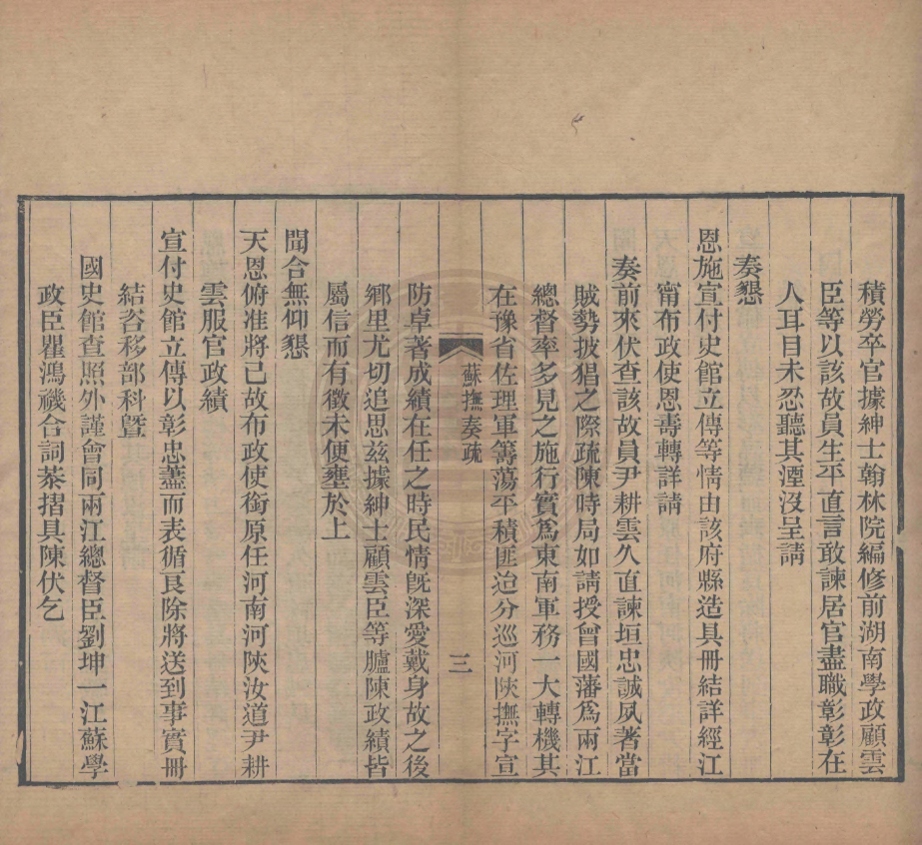 積勞卒官據紳士翰林院編修前湖南學政顧雲
臣等以該故員生平直言敢諫居官盡職彰彰在
人耳目未忍聽其湮沒呈請
奏懇
恩施宣付史館立傳等情由該府縣造具冊結詳經江
甯布政使恩壽轉詳請
奏前來伏查該故員尹耕雲久直諫垣忠誠夙著當
賊勢披猖之際疏陳時局如請授曾國藩爲兩江
總督率多見之施行實爲東南軍務一大轉機其
在豫省佐理軍籌蕩平積匪迨分巡河陝撫字宣
蘇撫奏疏
三
防卓著成績在任之時民情旣深愛戴身故之後
鄉里尤切追思茲據紳士顧雲臣等臚陳政績皆
屬信而有徵未便壅於上
聞合無仰懇
天恩俯准將已故布政使銜原任河南河陝汝道尹耕
雲服官政績
宣付史館立傳以彰忠藎而表循良除將送到事實冊
結咨移部科曁
國史館查照外謹會同兩江總督臣劉坤一江蘇學
政臣瞿鴻禨合詞恭摺具陳伏乞